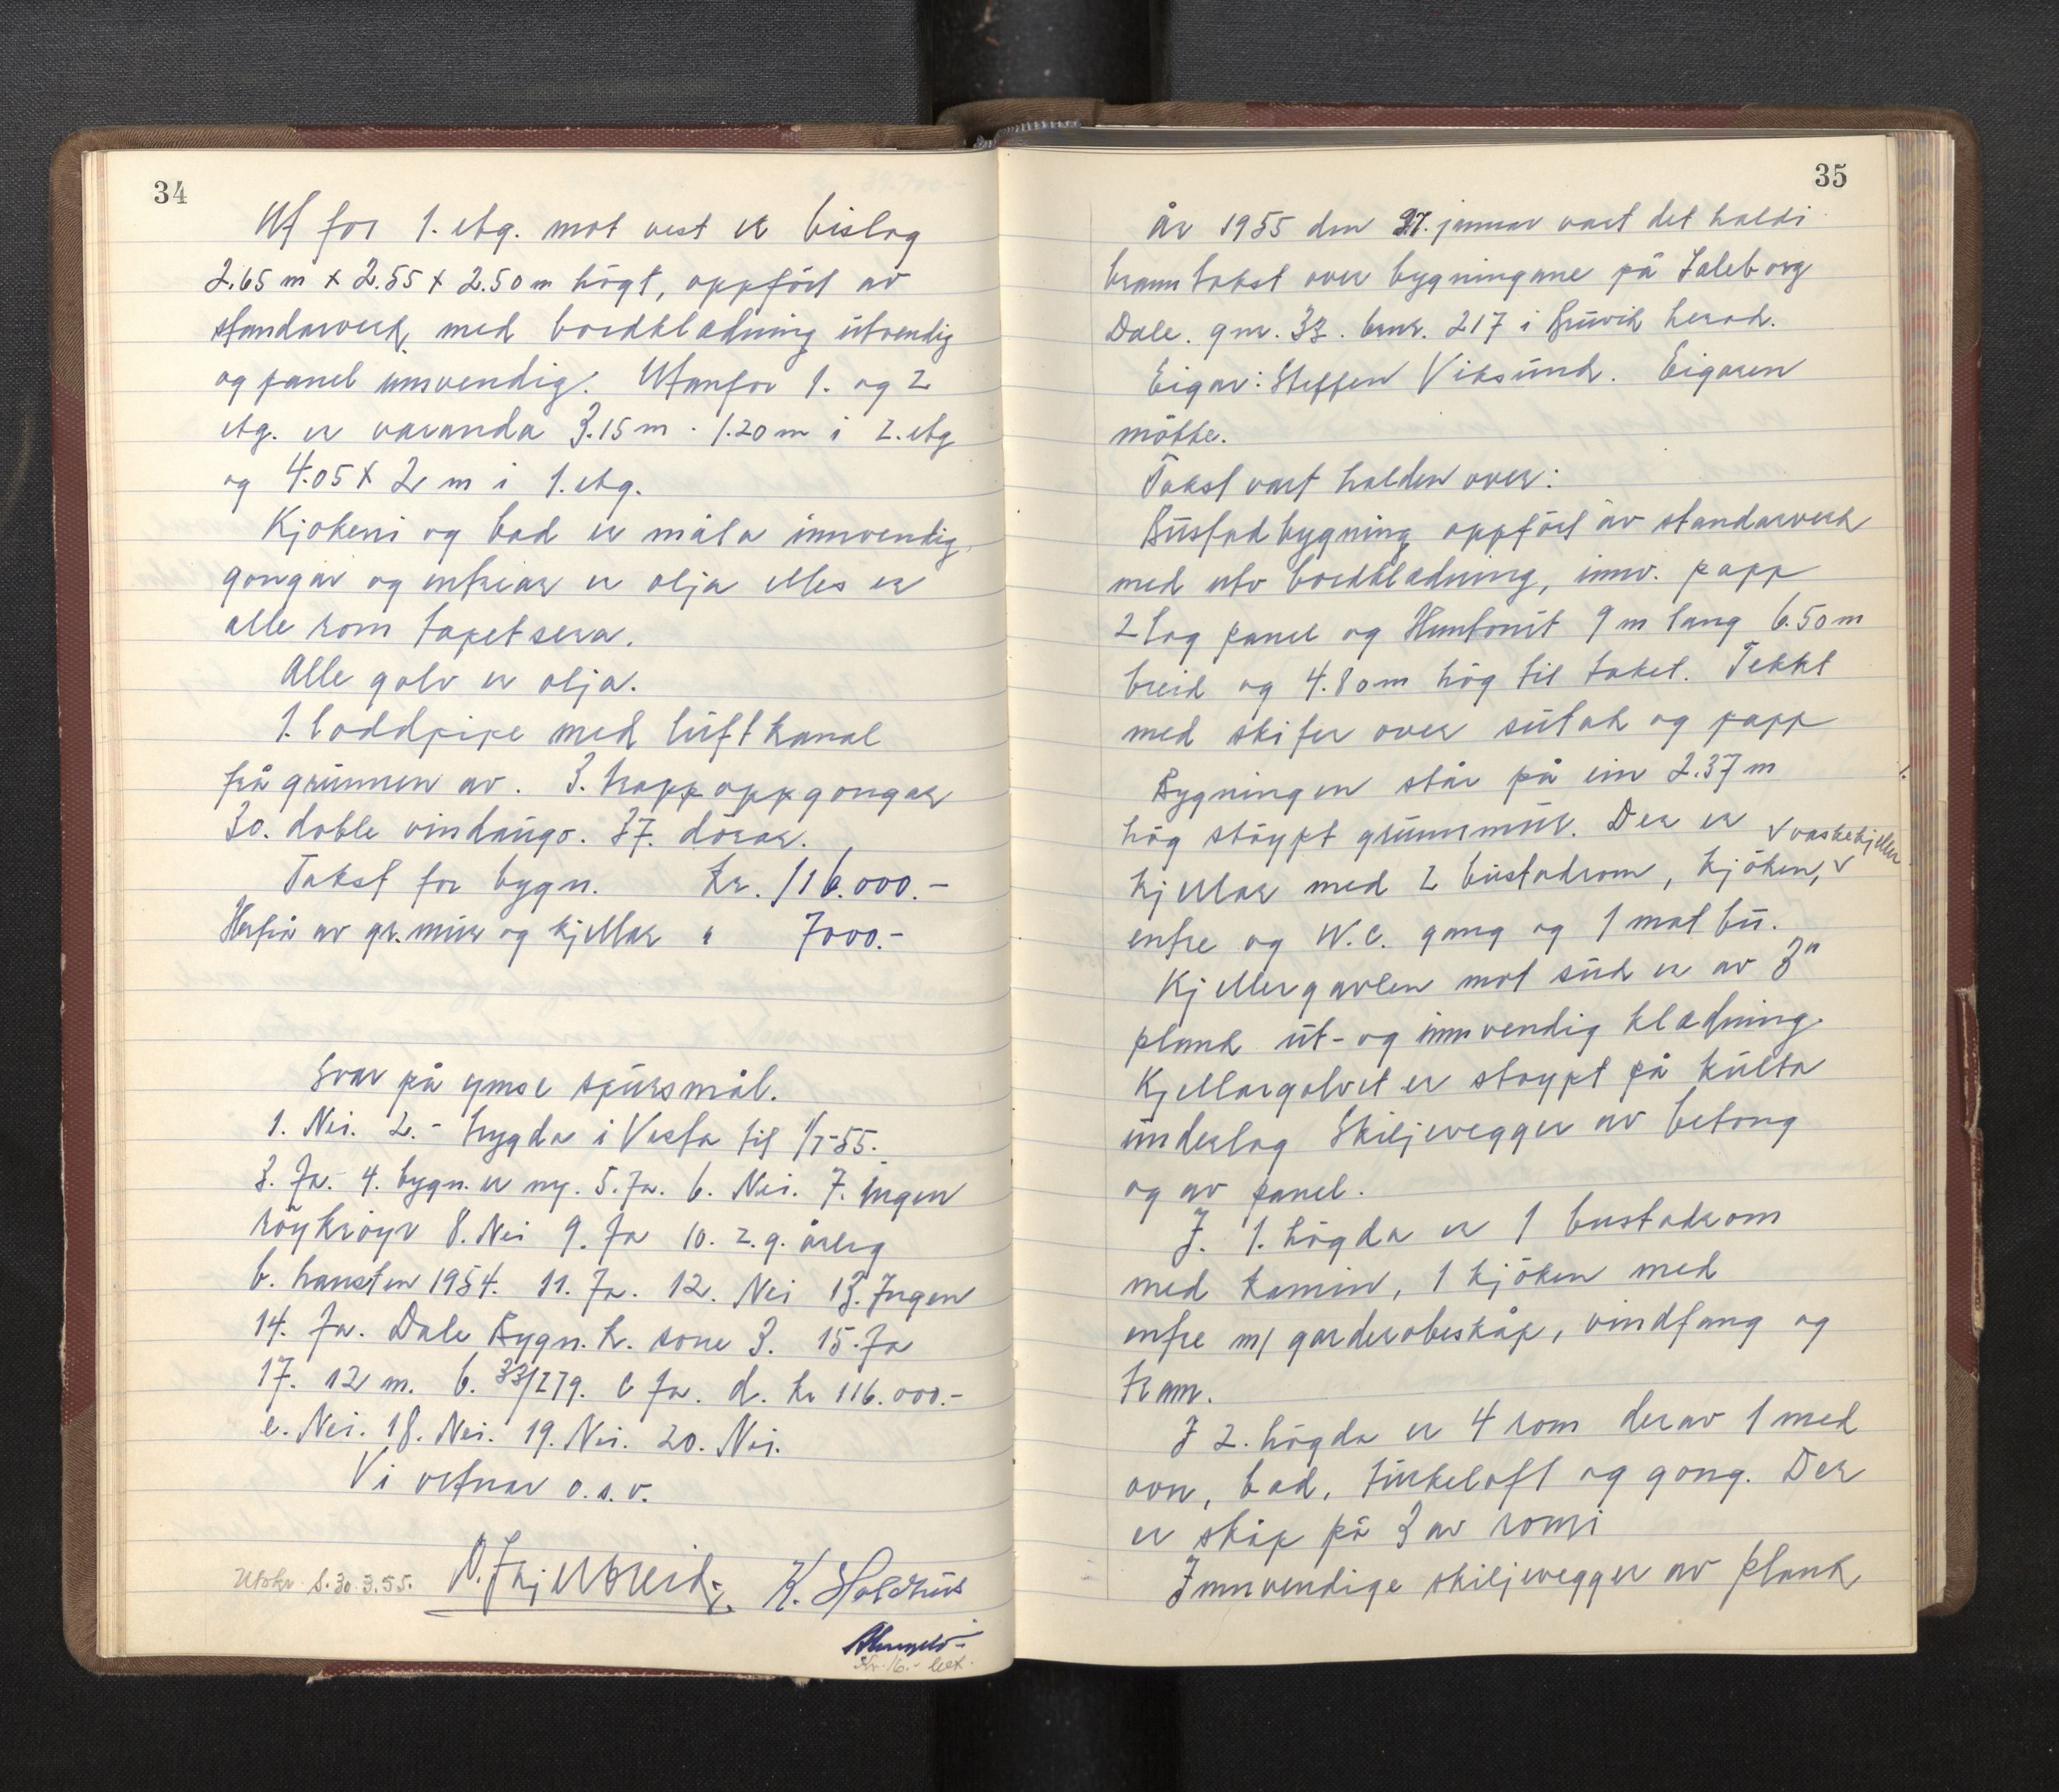 34
Ut for 1. etg. mot vest er bislag
2.65 m x 2.55 x 2.50 m högt, oppfört av
standarverk, med bordklædning utvendig
og panel innvendig. Utanfor 1. og 2
etg. er varanda 3.15 m · 1.20 m i 2. etg
og 4.05 x 2 m i 1. etg.
Kjokeni og bad er måla innvendig,
gongar og entrear er olja elles er
alle rom tapetsera.
Alle golv er olja.
1. loddpipe med luftkanal
frå grunnen av. 3. trappoppgongar
30. doble vindaugo. 37. dörar.
Takst for bygn. kr. 116.000.-
Herfrå av gr.mur og kjellar " 7000.-
Svar på ymse spursmål.
1. Nei. 2. - trygda i Vesta til 1/7-55.
3. Ja. 4. bygn. er ny. 5. Ja. 6. Nei. 7. Ingen
röykröyr 8. Nei 9. Ja 10. 2. g. årleg
b. hausten 1954. 11. Ja. 12. Nei 13. Ingen
14. Ja. Dale Bygn.k. sone 3. 15. Ja
17. 12 m. b. 33/279. c Ja. d. kr 116.000.-
e. Nei. 18. Nei. 19. Nei. 20. Nei.
Vi vitnar o.s.v.
Utskr. s. 30.3.55. K. Holdhus
Kr. 16.- bet.
35
År 1955 den 27. januar vart det haldi
branntakst over bygningane på Soleborg
Dale. gnr. 33. bnr. 217 i Bruvik herad.
Eigar: Steffen Viksund. Eigaren
mötte.
Takst vart halden over:
Bustadbygning oppfört av standarverk
med utv bordklædning, innv. papp
2 lag panel og Huntonit 9 m lang 6.50 m
breid og 4.80 m hög til taket. Tekkt
med skifer over sutak og papp
Bygningen står på ein 2.37 m
hög stöypt grunnmur. Der er
√ vaskekjeller
kjellar med 2 bustadrom, kjöken, √
entre og W.C. gang og 1 matbu.
Kjellergavlen mot sud er av 3"
plank ut- og innvendig klædning.
Kjellargolvet er stoypt på kulta
underlag Skiljevegger av betong
og av panel.
I. 1. högda er 1 bustadrom
med kamin, 1 kjöken med
entre m/ garderobeskåp, vindfang og
tram.
I 2. högda er 4 rom derav 1 med
ovn, bad, turkeloft og gong. Der
er skåp på 3 av romi
Innvendige skiljevegger av plank